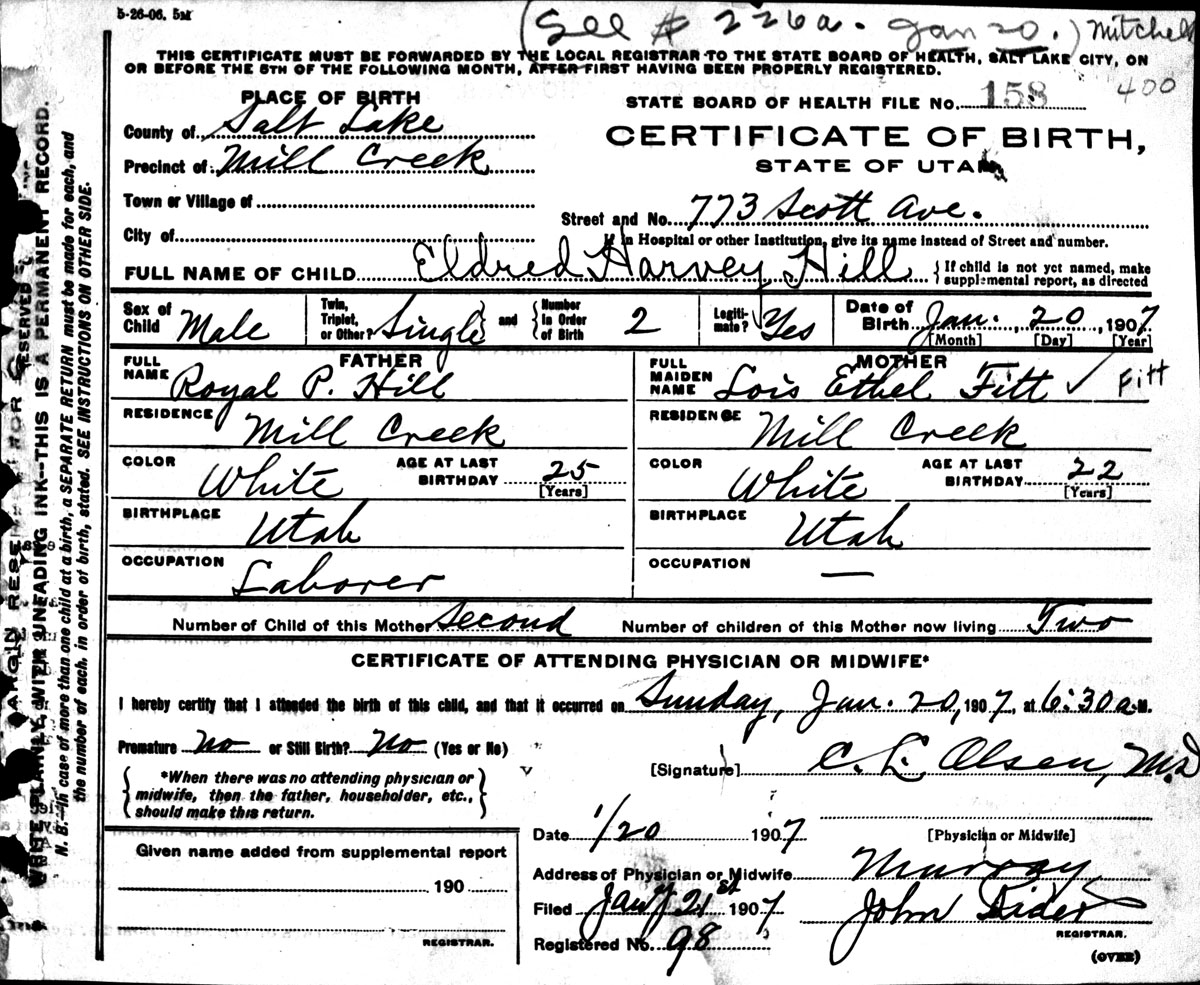 5-26-06. 5M
(See # 226a. Jan 20.) Mitchell
THIS CERTIFICATE MUST BE FORWARDED BY THE LOCAL REGISTRAR TO THE STATE BOARD OF HEALTH, SALT LAKE CITY, ON
OR BEFORE THE 5TH OF THE FOLLOWING MONTH, AFTER FIRST HAVING BEEN PROPERLY REGISTERED.
400
PLACE OF BIRTH
STATE BOARD OF HEALTH FILE No. 158
County of Salt Lake
CERTIFICATE OF BIRTH,
Precinct of Mill Creek
STATE OF UTAH
Town or Village of
Street and No. 773 Scott Ave.
City of
If in Hospital or other Institution, give its name instead of Street and number.
FULL NAME OF CHILD Eldred Harvey Hill {If child is not yet named, make
supplemental report, as directed
Sex of Child Male
Twin, Triplet, or Other? Single and {Number In Order of Birth 2
Legitimate? Yes
Date of Birth Jan. 20, 1907
[Month] [Day] [Year]
FATHER
FULL NAME Royal P. Hill
RESIDENCE Mill Creek
COLOR White AGE AT LAST BIRTHDAY 25
[Years]
BIRTHPLACE Utah
OCCUPATION Laborer
MOTHER
FULL MAIDEN NAME Lois Ethel Fitt ✓ Fitt
RESIDENCE Mill Creek
COLOR White AGE AT LAST BIRTHDAY 22
[Years]
BIRTHPLACE Utah
OCCUPATION —
Number of Child of this Mother Second Number of children of this Mother now living Two
CERTIFICATE OF ATTENDING PHYSICIAN OR MIDWIFE*
I hereby certify that I attended the birth of this child, and that it occurred on Sunday, Jan. 20, 1907, at 6:30 a.M.
Premature No or Still Birth? No (Yes or No)
[Signature] C. L. Olsen, M.D
{*When there was no attending physician or
midwife, then the father, householder, etc.,
should make this return.}
Date 1/20 1907 [Physician or Midwife]
Given name added from supplemental report
190
REGISTRAR.
Address of Physician or Midwife Murray
Filed Jany 21st 1907 John Rider
REGISTRAR.
Registered No. 98
(OVER)
WRITE PLAINLY, WITH UNFADING INK--THIS IS A PERMANENT RECORD.
N. B.--In case of more than one child at a birth, a SEPARATE RETURN must be made for each, and
the number of each, in order of birth, stated. SEE INSTRUCTIONS ON OTHER SIDE.